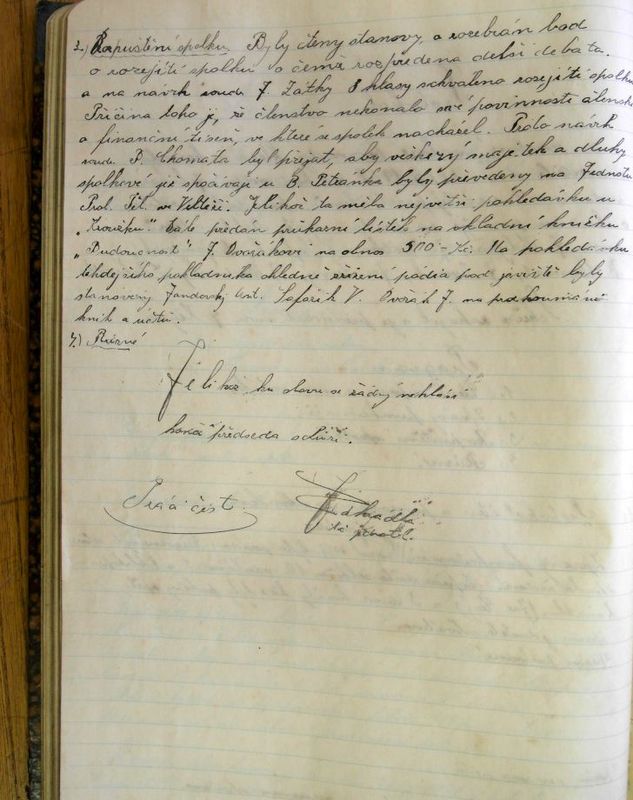 3.) Rozpuštění spolku. Byly čteny stanovy, a rozebrán bod
o rozejití spolku o čemž rozpředena delší debata.
a na návrh soudr. J. Zátky 8 hlasy schválena rozejití spolku
Příčina toho je, že členstvo nekonalo své povinnosti člensk
a finanční tíseň, ve které se spolek nacházel. Proto návrh
soudr. P. Chomata byl přijat, aby veškerý majetek a dluhy
spolkové jež spočívají u B. Petránka byly převedeny na Jednotu
Prol. Těl. ve Jelikož ta měla největší pohledávku u
Dále předán průkazní lístek na vkladní knížku
„Budoucnost" J. Dvořákovi na obnos 500 - Kč. Na pohledávku
tehdejšího pokladníka ohledně zřízení podia pod jeviště byly
stanoveny Jandovský Ant. Šafařík V. Dvořák J. na prozkoumání
knih a účtů.
4.) Různé
Jelikož ku slovu se žádný nehlásí
končí předseda schůzi.
Práci čest.